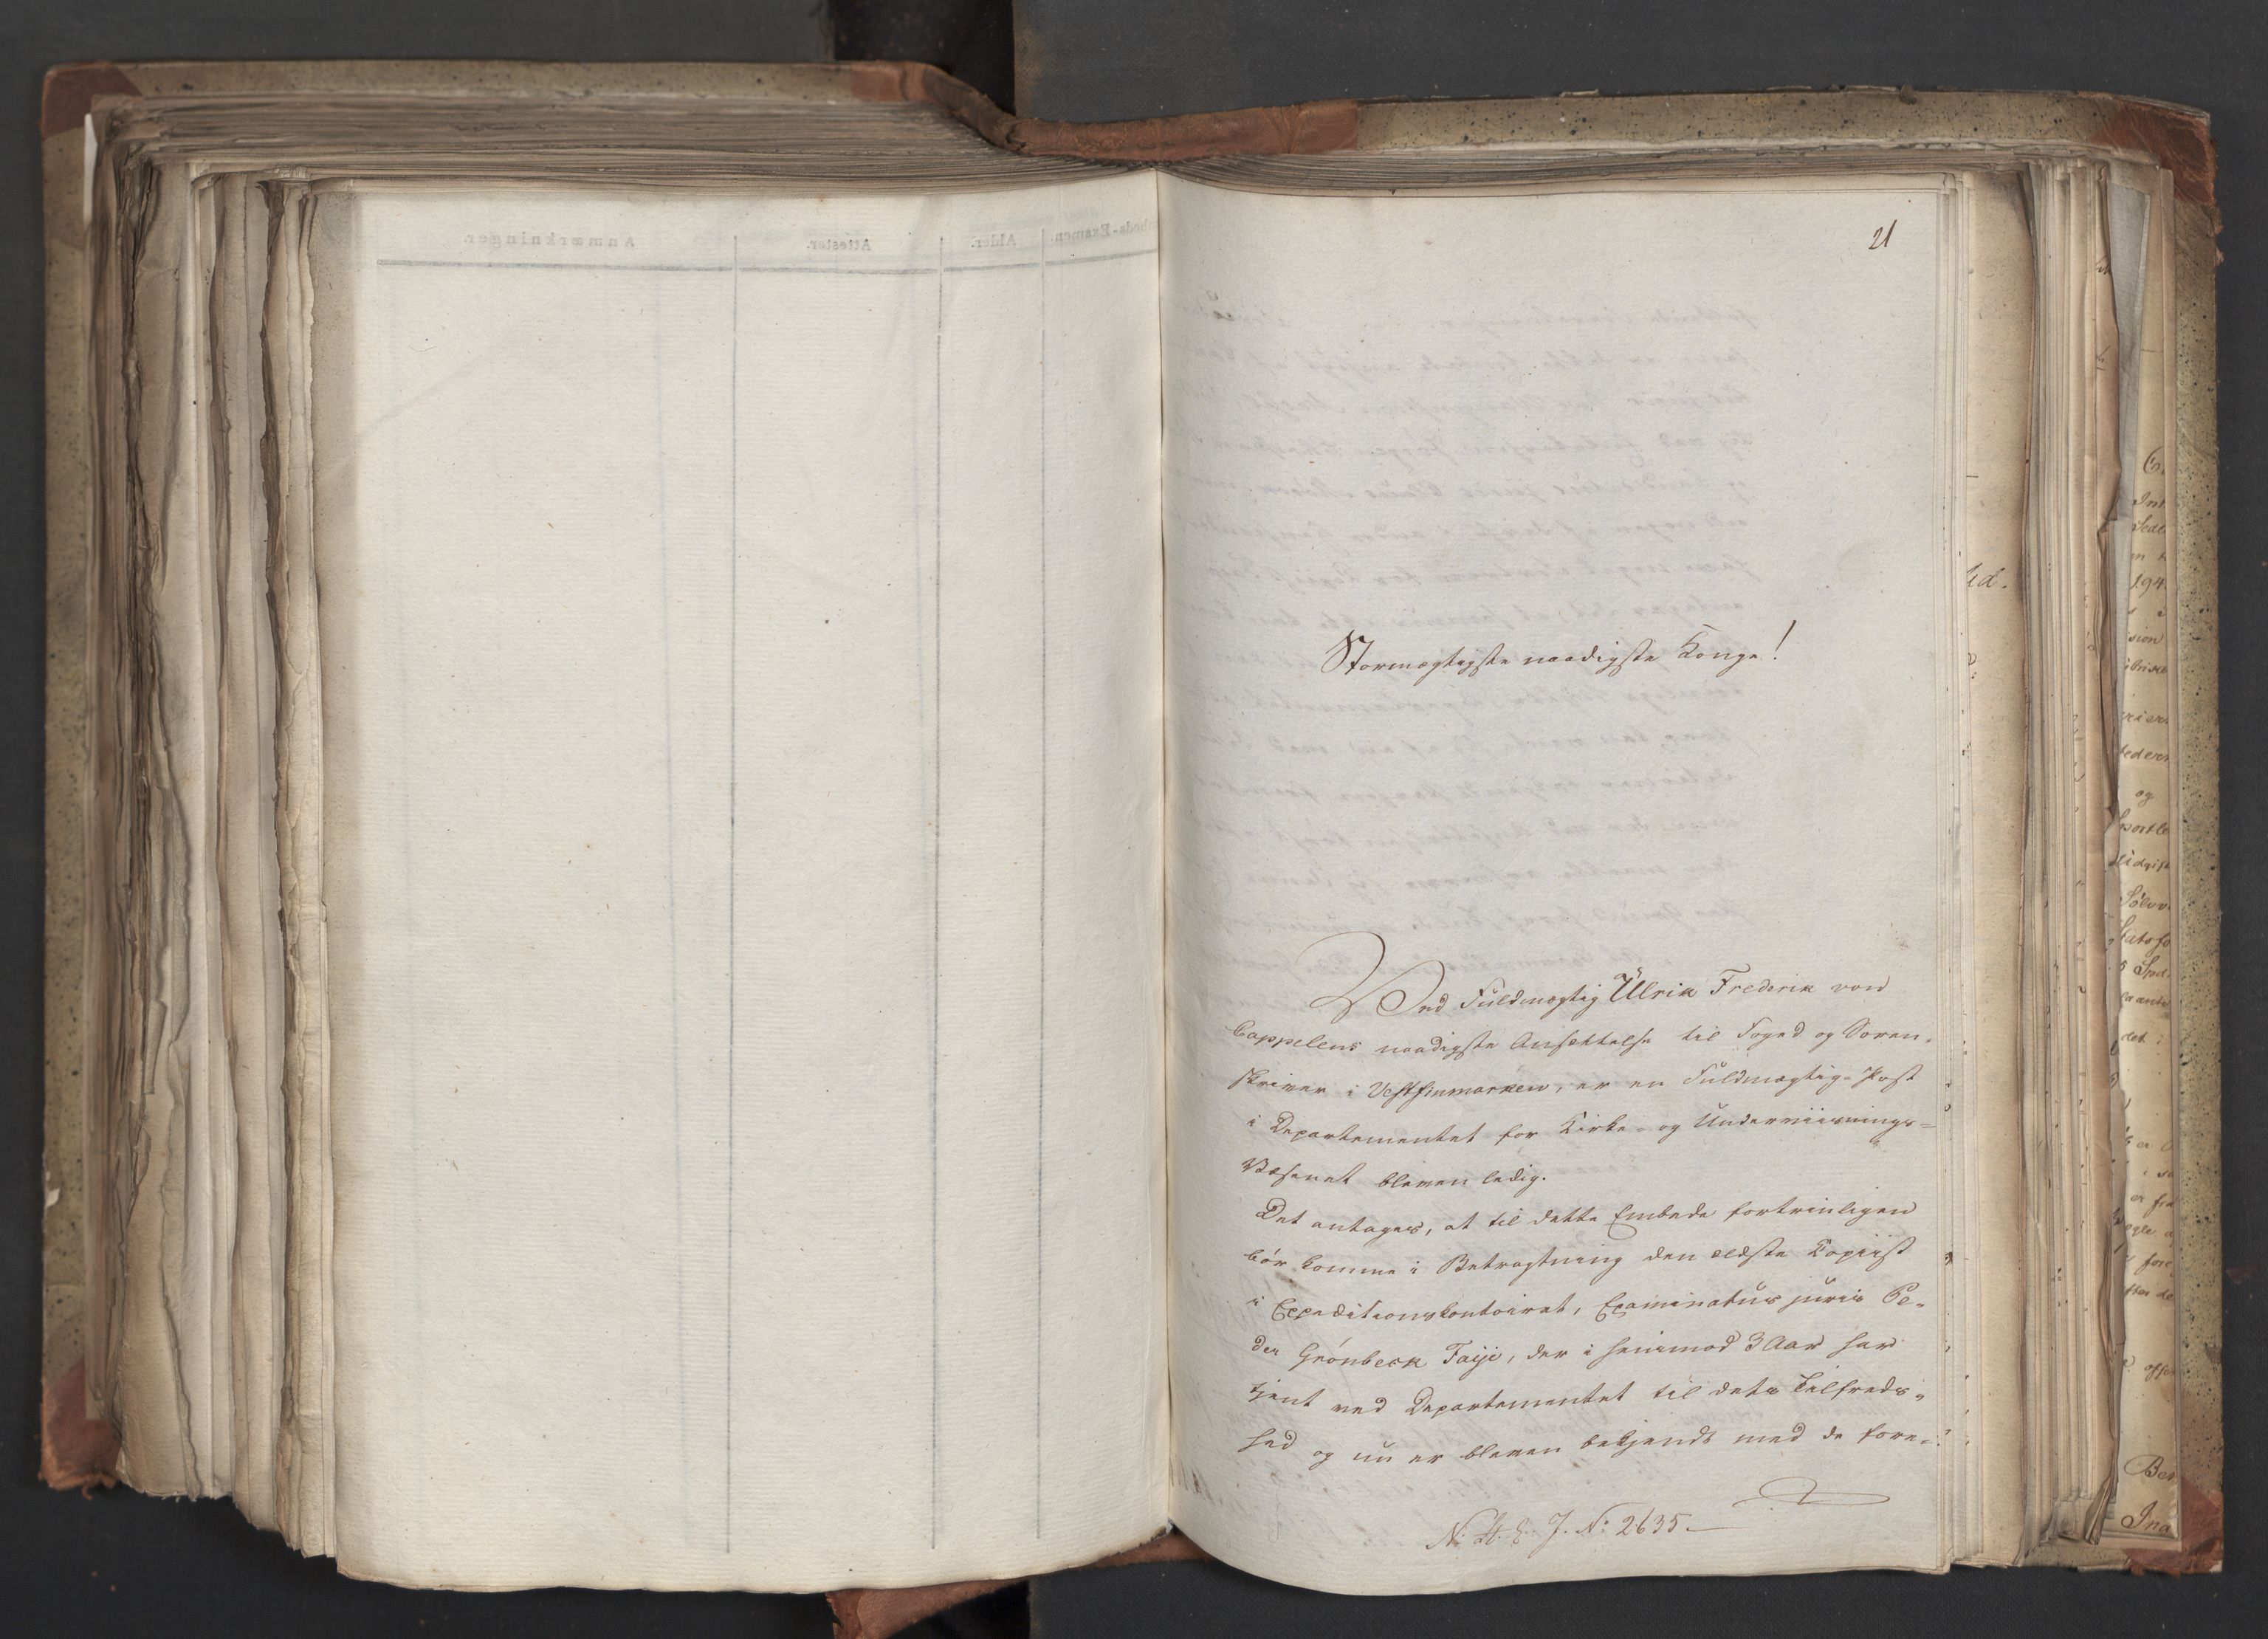 21
Stormægtigste naadigste Konge!
Ved Fuldmægtig Ulrik Frederik von
Cappelens naadigste Ansættelse til Foged og Soren-
skriver i Vestfinmarken, er en Fuldmægtig-Post
i Departementet for Kirke- og Underviisnings-
Væsenet bleven ledig.
Det antages, at til dette Embede fortrinligen
bør komme i Betragtning den ældste Kopiist
i Expeditionskontoiret, Examinatus juris Pe-
der Grönbeck Taije, der i henimod 3 Aar har
tjent ved Departementet til dets Tilfreds-
hed og nu er bleven bekjendt med de fore-
J. No 2635.